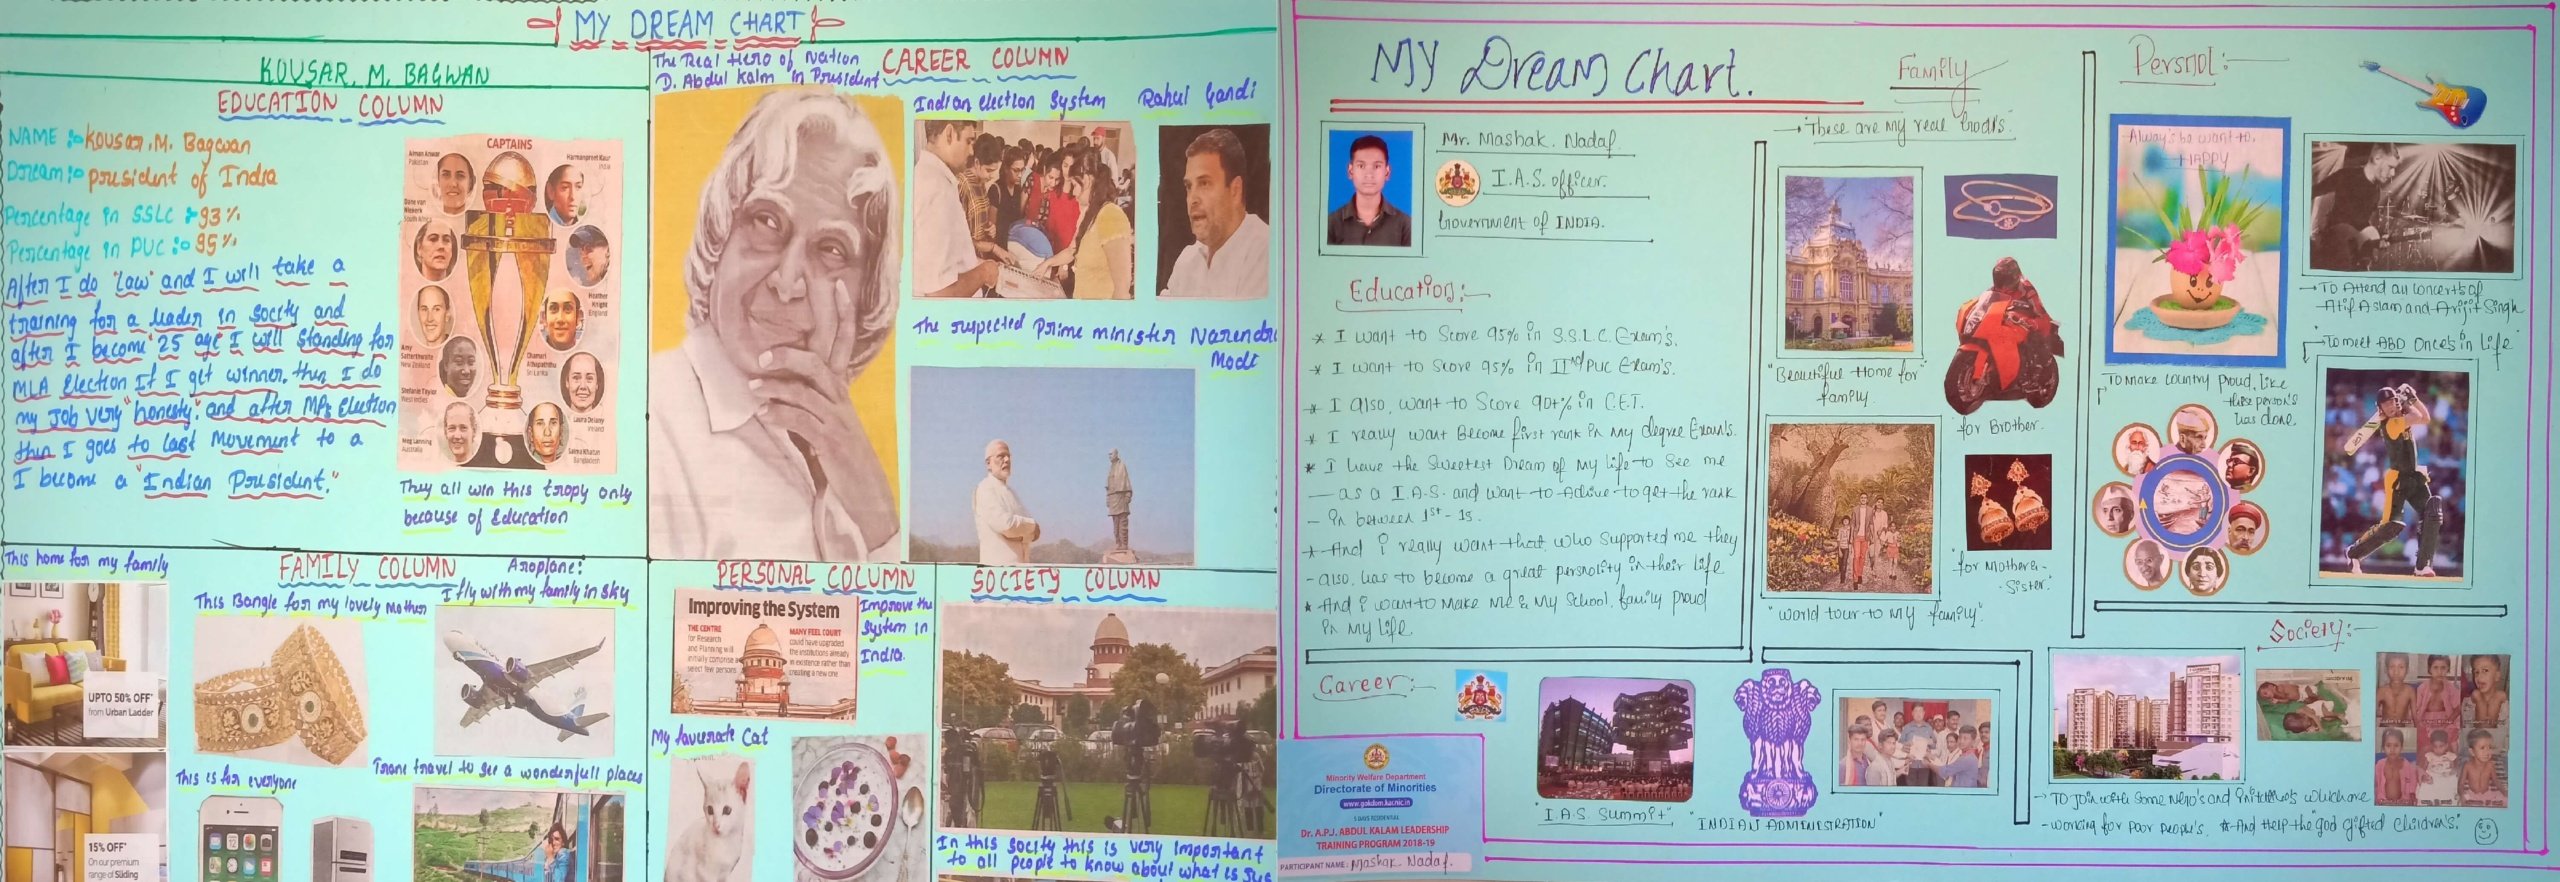 MY DREAM CHART
KOUSAR. M. BAGWAN
EDUCATION COLUMN
NAME :- KOUSAR. M. Bagwan
Dream :- president of India
Percentage in SSLC :- 93%
Percentage in PUC :- 95%
After I do "law" and I will take a
training for a leader in socity and
after I become "25 age I will standing for
MLA election If I get winner. then I do
my job very "honesty" and after MPs Election
then I goes to last movement to a
I become a "Indian President."
CAPTAINS
Aiman Anwar
Pakistan
Harmanpreet Kaur
India
Dane van
Niekerk
South Africa
Heather
Knight
England
Amy
Satterthwaite
New Zealand
Chamari
Athapaththu
Sri Lanka
Stefanie Taylor
West Indies
Laura Delany
Ireland
Meg Lanning
Australia
Salma Khatun
Bangladesh
They all win this tropy only
because of Education
The Real Hero of Nation
D. Abdul Kalm in President
CAREER COLUMN
Indian election system
Rahul Gandi
The respected Prime minister Narendra
Modi
This home for my family
FAMILY COLUMN
Aroplane:
I fly with my family in sky
This Bangle for my lovely Mother
UPTO 50% OFF*
from Urban Ladder
This is for everyone
Trane travel to see a wonderfull places
15% OFF*
On our premium
range of Sliding
PERSONAL COLUMN
Improving the System
THE CENTRE
for Research
and Planning will
initially comprise a
select few persons
MANY FEEL COURT
could have upgraded
the institutions already
in existence rather than
creating a new one
Improve the
system in
India.
My favourate Cat
SOCIETY COLUMN
In this socity this is very important
to all people to know about what is Jus
My Dream Chart.
Mr. Mashak. Nadaf.
I.A.S. officer.
Government of INDIA.
Education:-
* I want to Score 95% in S.S.L.C. Exam's.
* I want to Score 95% in IInd PUC Exam's.
* I also, want to Score 90+% in C.E.T.
* I really want Become first rank in my degree Exam's.
* I have the Sweetest Dream of My life to See me
- as a I.A.S. and want to Achive to get the rank
- in between 1st - 15.
* And i really want that, who supported me they
- also. has to become a great persnolity in their life
* And i want to make me & My School, family proud
in my life.
Family
→ These are my real God's.
"Beautiful Home for"
family.
for Brother.
"World tour to my family".
"for Mother &-
- Sister."
Persnol:-
Always be want to.
HAPPY
→ To Attend an Concerts of
Atif Aslam and Arijit Singh
→ To meet ABD Once's in life
To Make country proud, like
these person's
has done.
Society:-
→ To Join with Some Hero's and initative's which are
- working for poor people's. * And Help the "god gifted Children's".
Career:-
"I.A.S. Summit"
"INDIAN ADMINISTRATION"
Minority Welfare Department
Directorate of Minorities
www.gokdom.kar.nic.in
5 DAYS RESIDENTIAL
Dr. A.P.J. ABDUL KALAM LEADERSHIP
TRAINING PROGRAM 2018-19
PARTICIPANT NAME: Mashak. Nadaf.